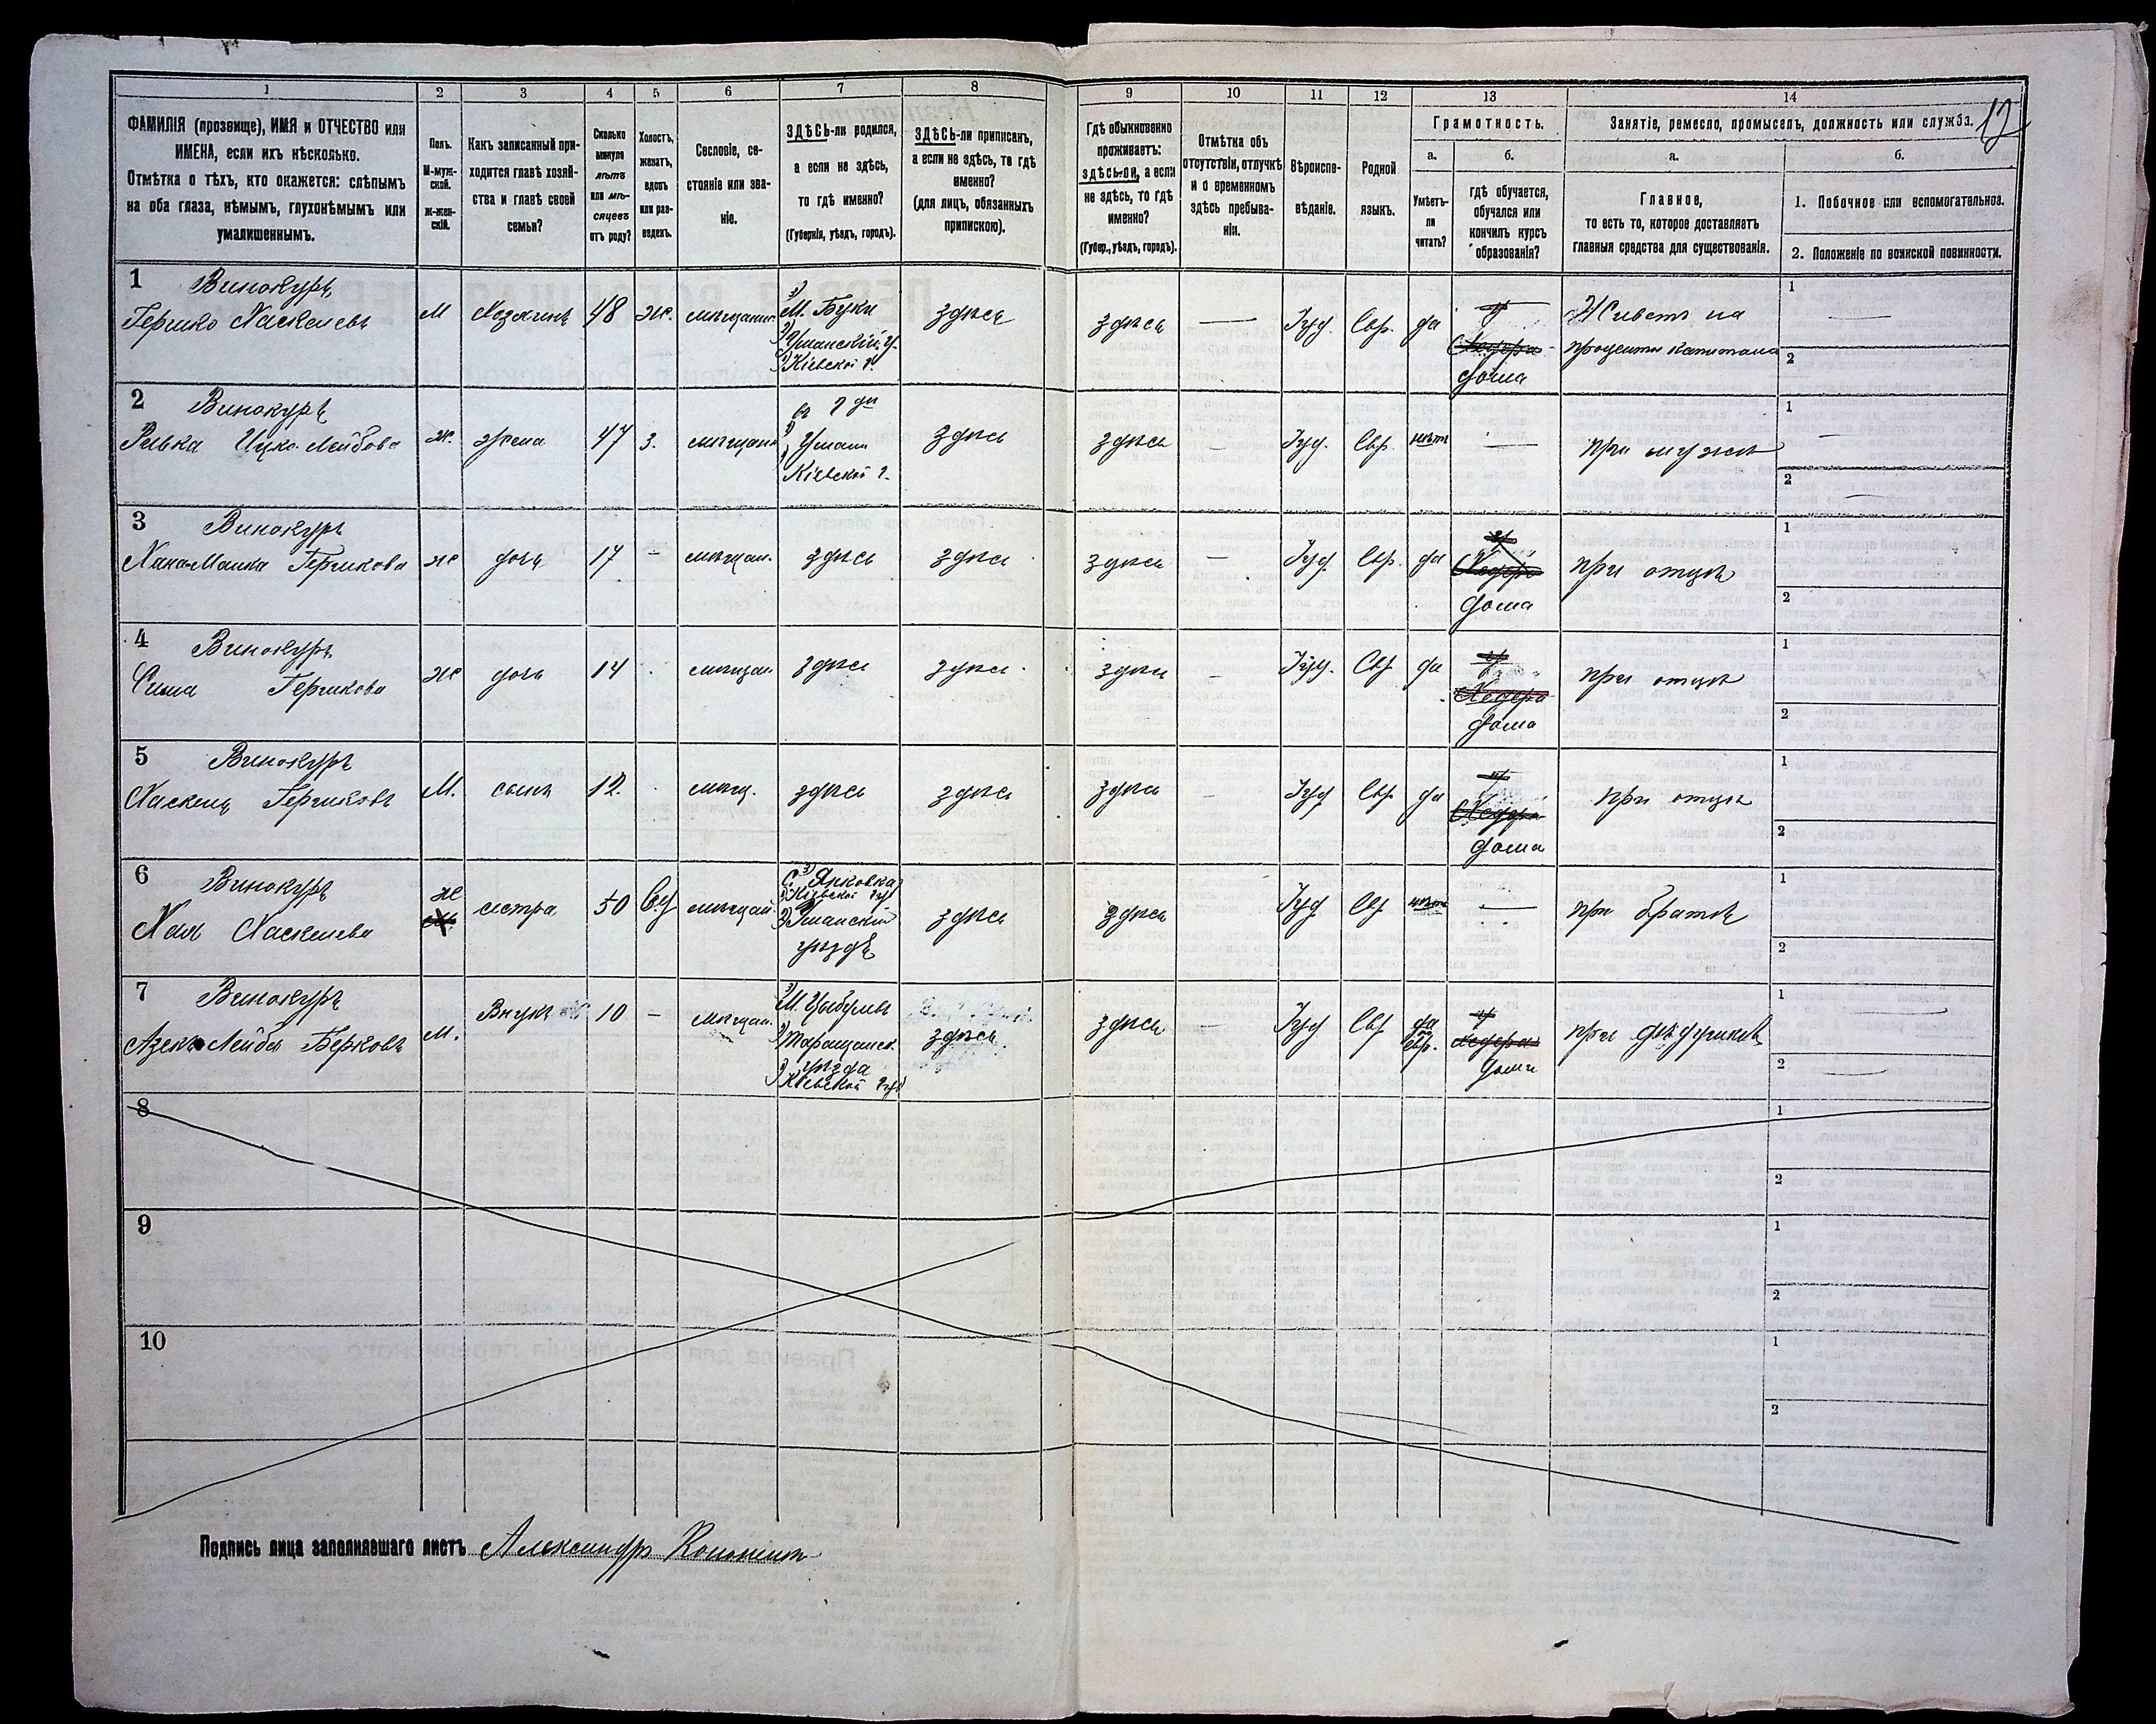 1 2 3 4 5 6 7 8 9 10 11 12 13 14
12
ФАМИЛІЯ (прозвище), ИМЯ и ОТЧЕСТВО или
ИМЕНА, если ихъ нѣсколько.
Отмѣтка о тѣхъ, кто окажется: слѣпымъ
на оба глаза, нѣмымъ, глухонѣмымъ или
умалишеннымъ.
Полъ.
М-муж-
ской.
Ж-жен-
скій.
Какъ записанный при-
ходится главѣ хозяй-
ства и главѣ своей
семьи?
Сколько
минуло
лѣтъ
или мѣ-
сяцевъ
отъ роду?
Холостъ,
женатъ,
вдовъ
или раз-
веденъ.
Сословіе, со-
стояніе или зва-
ніе.
ЗДѢСЬ-ли родился,
а если не здѣсь,
то гдѣ именно?
(Губернія, уѣздъ, городъ).
ЗДѢСЬ-ли приписанъ,
а если не здѣсь, то гдѣ
именно?
(для лицъ, обязанныхъ
припискою).
Гдѣ обыкновенно
проживаетъ:
здѣсь-ли, а если
не здѣсь, то гдѣ
именно?
(Губер., уѣздъ, городъ).
Отмѣтка объ
отсутствіи, отлучкѣ
и о временномъ
здѣсь пребыва-
ніи.
Вѣроиспо-
вѣданіе.
Родной
языкъ.
Грамотность.
а.
Умѣетъ-
ли
читать?
б.
гдѣ обучается,
обучался или
кончилъ курсъ
образованія?
Занятіе, ремесло, промыселъ, должность или служба.
а.
Главное,
то есть то, которое доставляетъ
главныя средства для существованія.
б.
1. Побочное или вспомогательное.
2. Положеніе по воинской повинности.
1 Винокуръ
Гершко Хаскелевъ М Хозяинъ 48 ж. мѣщанин.
М. Буки
Уманскій у.
Кіевской г.
здѣсь здѣсь — Іуд. Евр. да
Хедера
дома
Живетъ на
проценты капитала
1
2
2 Винокуръ
Ривка Ицко-Лейбова ж. жена 47 З. мѣщан.
Умани
Кіевской г.
здѣсь здѣсь — Іуд. Евр. нѣтъ — при мужѣ
1
2
3 Винокуръ
Хана-Малка Гершкова ж дочь 17 — мѣщан. здѣсь здѣсь здѣсь — Іуд. Евр. да
Хедера
дома
при отцѣ
1
2
4 Винокуръ
Сима Гершкова ж дочь 14 мѣщан. здѣсь здѣсь здѣсь — Іуд. Евр да
Хедера
дома
при отцѣ
1
2
5 Винокуръ
Хаскель Гершковъ М. сынъ 12. мѣщ. здѣсь здѣсь здѣсь — Іуд Евр да
Хедера
дома
при отцѣ
1
2
6 Винокуръ
Хая Хаскелева ж сестра 50 мѣщан.
С. Янковка
Кіевской губ
Уманскій
уѣздъ
здѣсь здѣсь Іуд Евр нѣтъ — при братѣ
1
2
7 Винокуръ
Лейба Берковъ М. Внукъ 10 — мѣщан.
М. Цыбулевъ
Таращанск.
уѣзда
Кіевской губ
здѣсь здѣсь — Іуд Евр да
евр.
хедера
дома
при дѣдушкѣ
1
2
8
1
2
9
1
2
10
1
2
Подпись лица заполнявшаго листъ Александръ